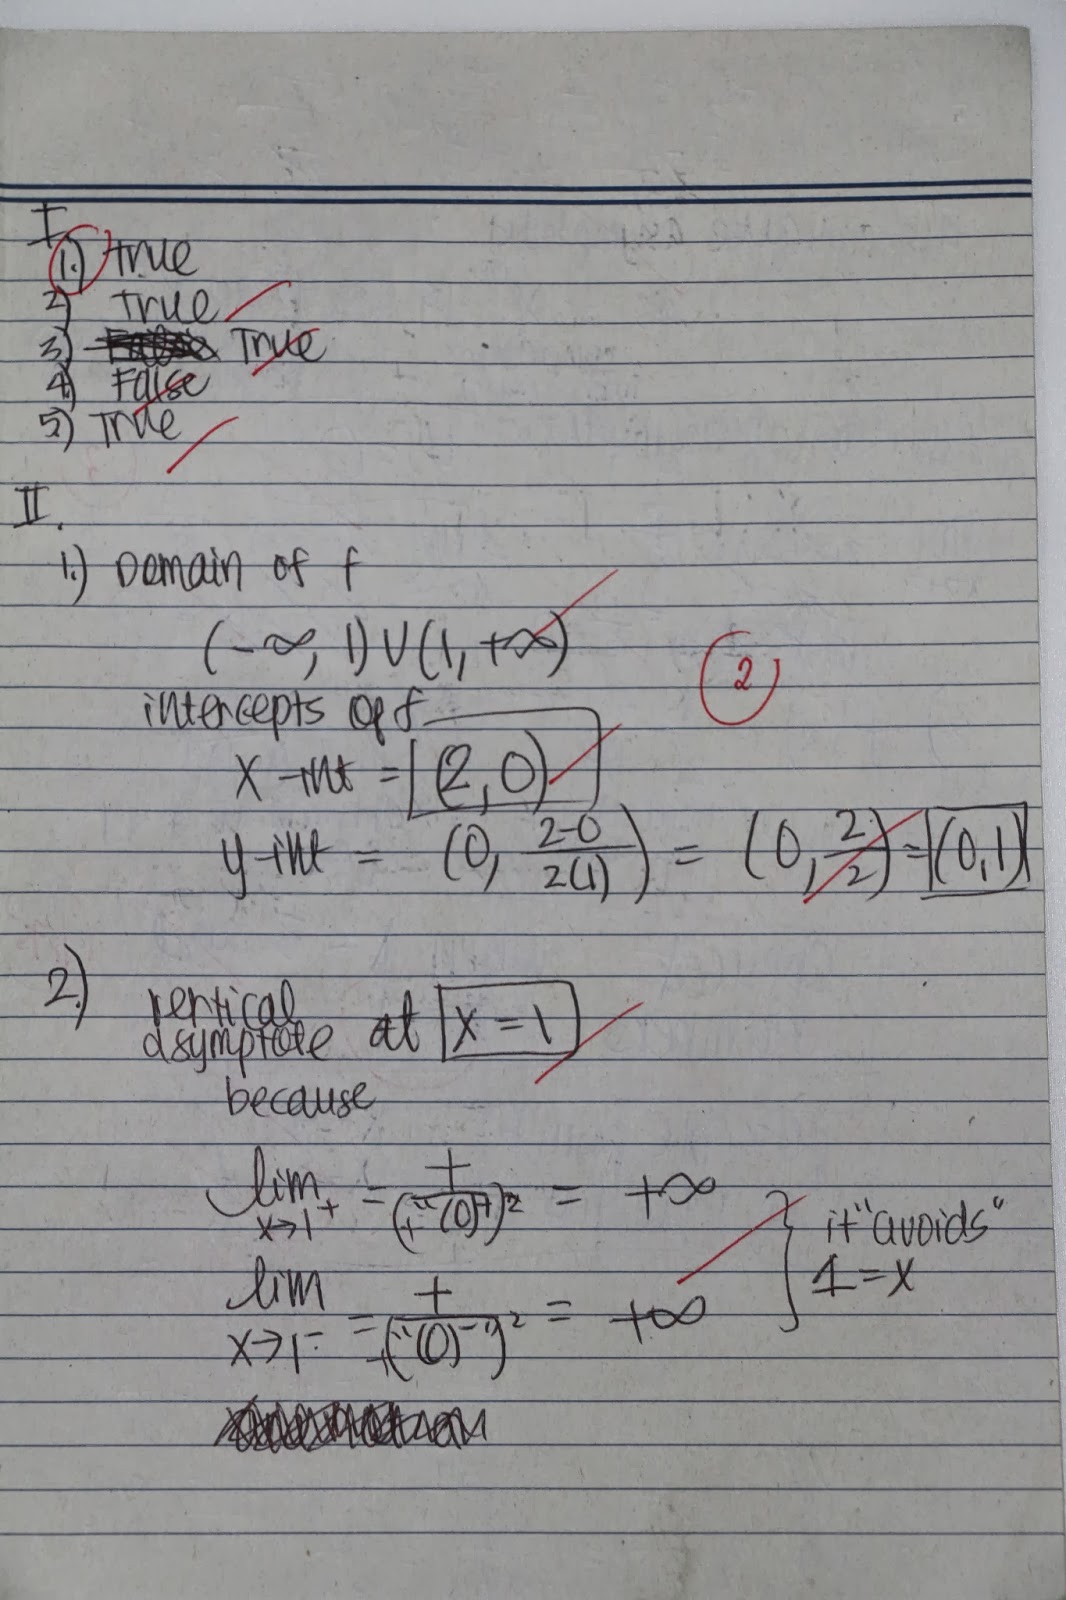 I.
1.) True
2) True
3) True
4.) False
5) True
II.
1.) Domain of f
(-∞, 1) U (1, +∞)
2
intercepts of f
x-int = (2, 0)
y-int = (0, 2-0/2(1)) = (0, 2/2) = (0,1)
2.) vertical asymptote at x = 1
because
lim x→1⁺ = +/(+"(0)⁺")² = +∞
lim x→1⁻ = +/(+"(0)⁻")² = +∞
it "avoids"
1 = x